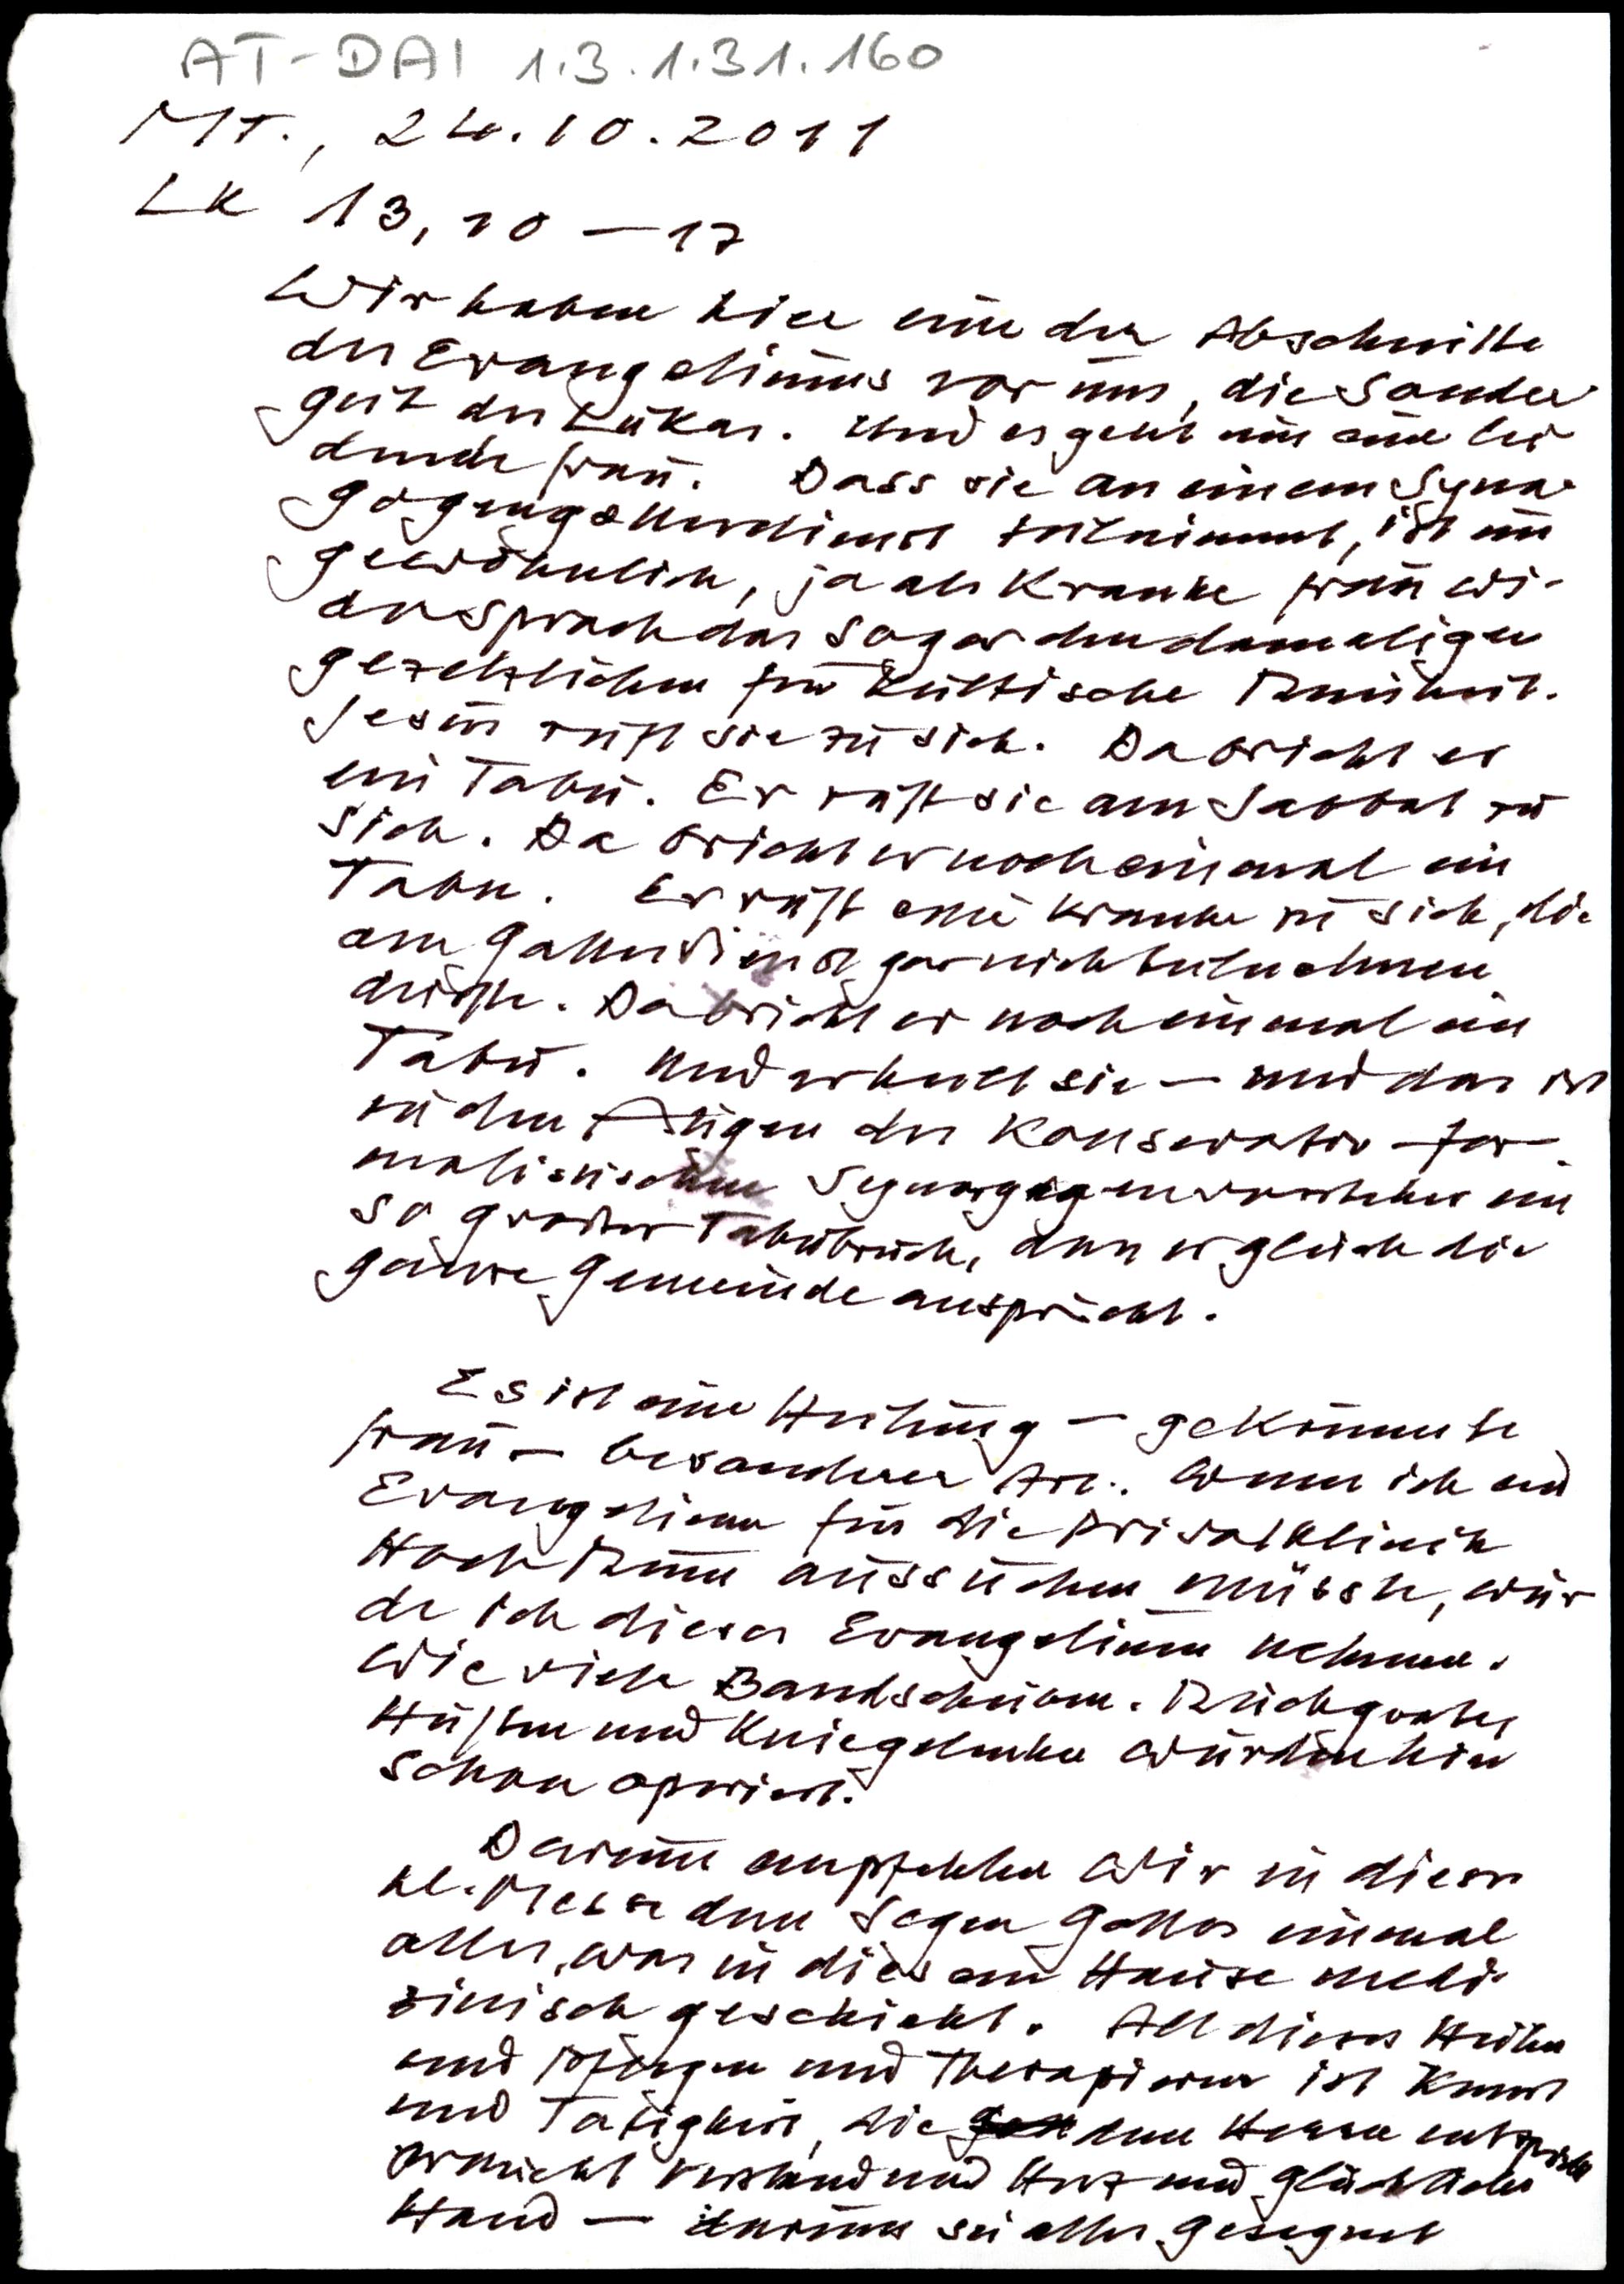 AT-DAI 1.3.1.31.160
Mt., 24.10.2011
LK 13,10-17
Wir haben hier eine der Abschnitte
des Evangeliums vor uns, die Sonder
gut des Lukas. Und es geht um eine lei
dende Frau. Dass sie an einem Syna-
gogengottesdienst teilnimmt, ist un
gewöhnlich, ja als Kranke Frau wi-
dersprach das sogar den damaligen
gesetzlichen für kultische Reinheit.
Jesus ruft sie zu sich. Da bricht er
ein Tabu. Er ruft sie am Sabbat zu
sich. Da bricht er noch einmal ein
Tabu. Er ruft eine Kranke zu sich, die
am Gottesdienst gar nicht teilnehmen
dürfte. Da bricht er noch einmal ein
Tabu. Und er heilt sie - und das ist
in den Augen des Konservativ-for-
malistischen Synagogenvorstehers ein
so großer Tabubruch, dass er gleich die
ganze Gemeinde anspricht.
Es ist eine Heilung - gekrümmte
Frau - besonderer Art. Wenn ich ein
Evangelium für die Privatklinik
Hoch Rum aussuchen müsste, wür
de ich dieses Evangelium nehmen.
Wie viele Bandscheiben. Rückgrate,
Hüften und Kniegelenke wurden hier
schon operiert.
Darum empfehlen wir in dieser
hl. Messe dem Segen Gottes einmal
alles, was in diesem Hause medi-
zinisch geschieht. All dieses Heilen
und Pflegen und Therapieren ist Kunst
und Tätigkeit, die dem Herrn entspricht
Verstand und Herz und glückliche
Hand - darum sei alles gesegnet